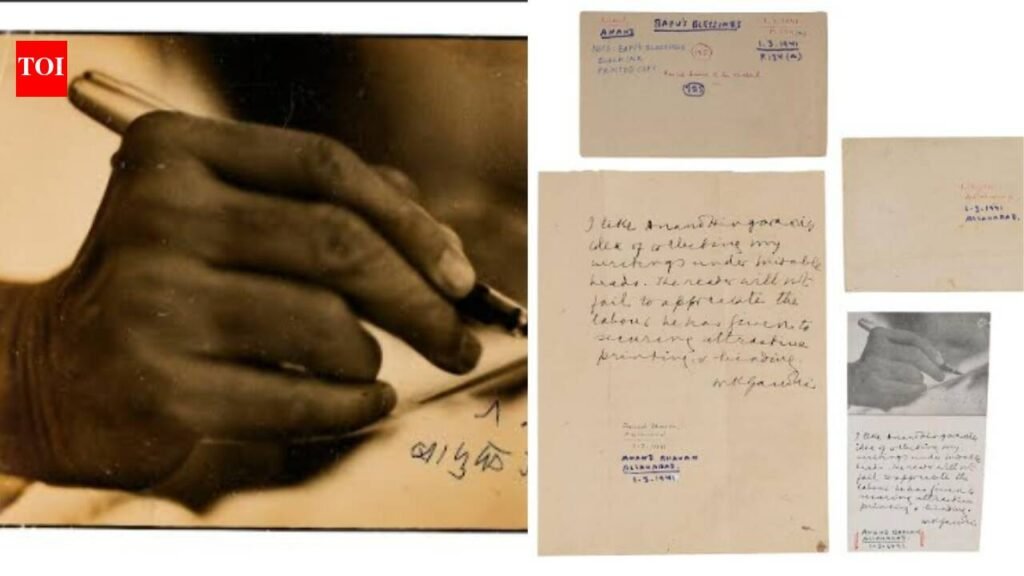 TOI
BAPU'S BLESSINGS
ANAND
1.3.1941
NOTE: BAPU'S BLESSINGS
PRINTED COPY
1-3-1941
ALLAHABAD.
I like Anand Hingorani's
idea of collecting my
writings under suitable
heads. The reader will not
fail to appreciate the
labour he has given to
securing attractive
printing & binding.
MKGandhi
ANAND BHAWAN
ALLAHABAD.
1-3-1941
I like Anand Hingorani's
idea of collecting my
writings under suitable
heads. The reader will not
fail to appreciate the
labour he has given to
securing attractive
printing & binding.
MKGandhi
ANAND BHAWAN
ALLAHABAD
1-3-1941